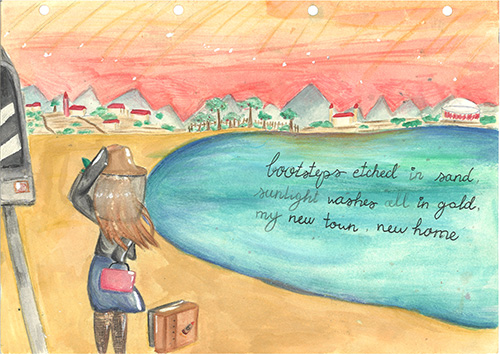 bootsteps etched in sand,
sunlight washes all in gold,
my new town, new home